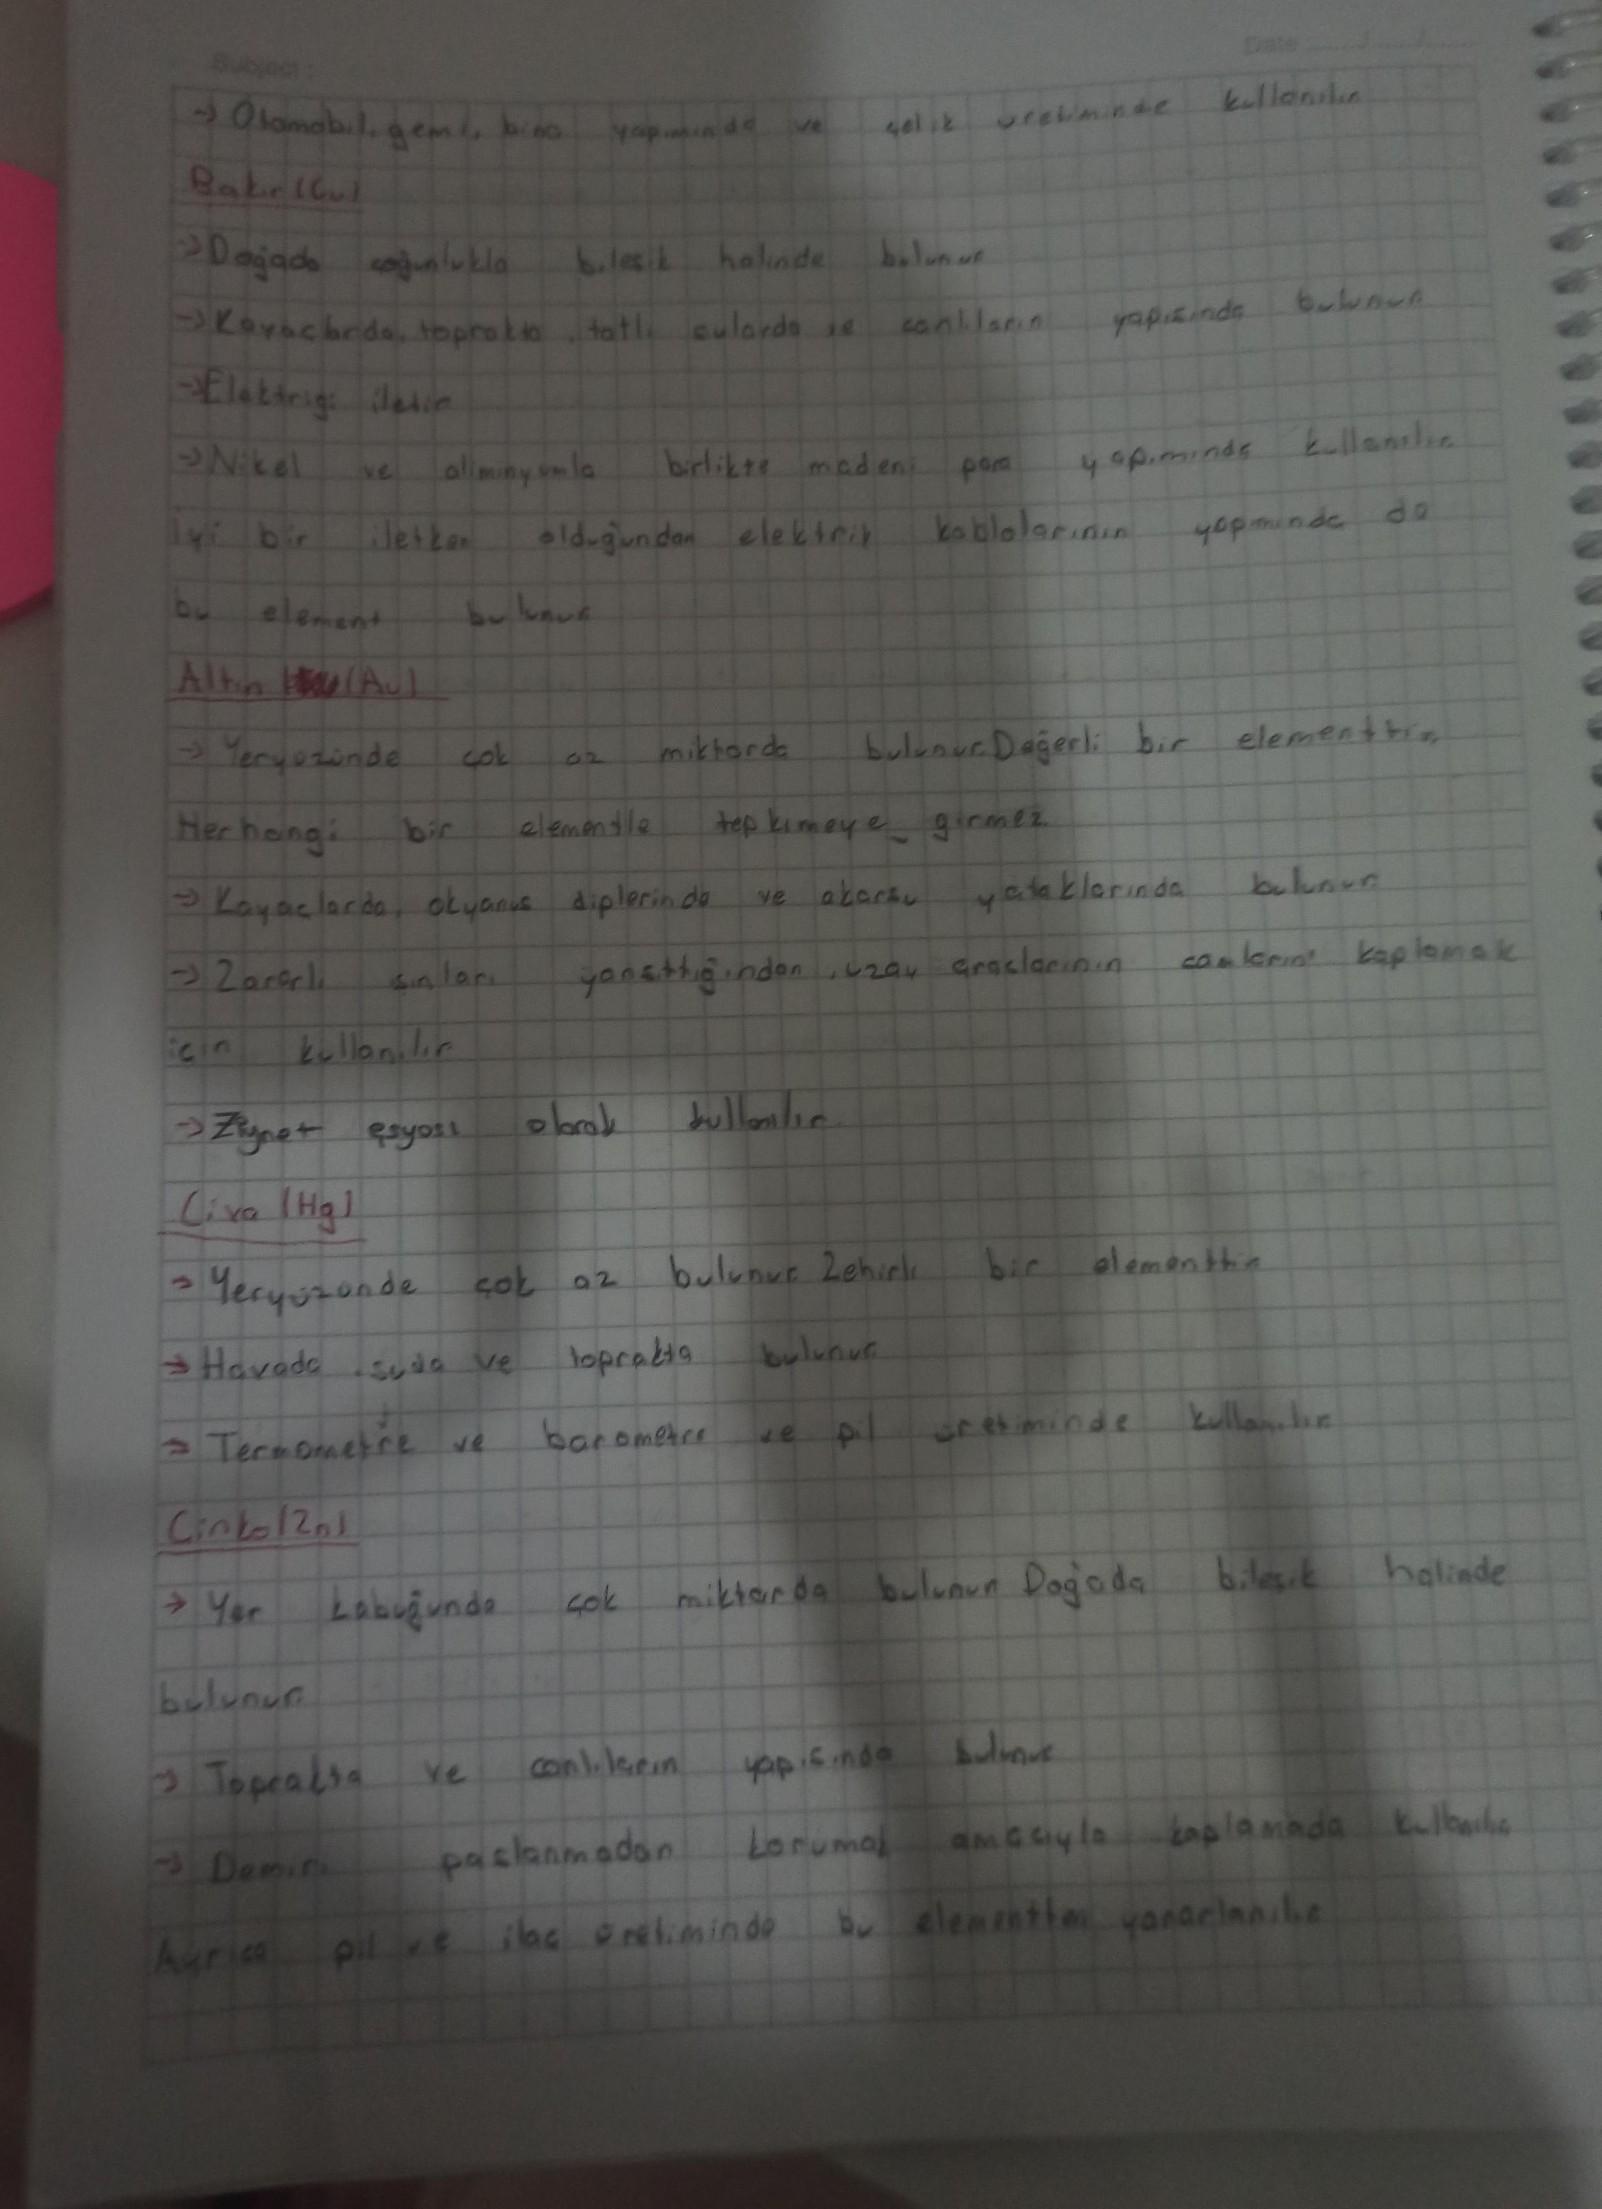 Subject:
Date ...../...../.....
→ Otomobil, gemi, bina yapımında ve çelik üretiminde kullanılır
Bakır (Cu)
→ Doğada çoğunlukla bileşik halinde bulunur
→ Kayaclarda, toprakta, tatlı sularda ve canlıların yapısında bulunur
→ Elektriği iletir
→ Nikel ve aliminyumla birlikte madeni para yapımında kullanılır
iyi bir iletken olduğundan elektrik kablolarının yapımında da
bu element bulunur
Altın (Au)
→ Yeryüzünde çok az miktarda bulunur. Değerli bir elementtir
Herhangi bir elementle tepkimeye girmez
→ Kayaclarda, okyanus diplerinde ve akarsu yataklarında bulunur
→ Zararlı ışınları yansıttığından, uzay araçlarının camlarını kaplamak
için kullanılır
→ Ziynet eşyası olarak kullanılır
Civa (Hg)
→ Yeryüzünde çok az bulunur Zehirli bir elementtir
→ Havada, suda ve toprakta bulunur
→ Termometre ve barometre ve pil üretiminde kullanılır
Çinko (Zn)
→ Yer kabuğunda çok miktarda bulunur Doğada bileşik halinde
bulunur
→ Toprakta ve canlıların yapısında bulunur
→ Demiri paslanmadan korumak amacıyla kaplamada kullanılır
Ayrıca pil ve ilaç üretiminde bu elementten yararlanılır